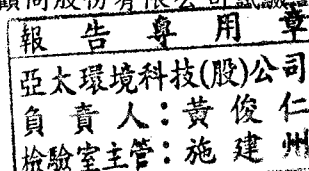 顧問股份有限公司試驗
報告專用章
亞太環境科技(股)公司
負責人：黃俊仁
檢驗室主管：施建州